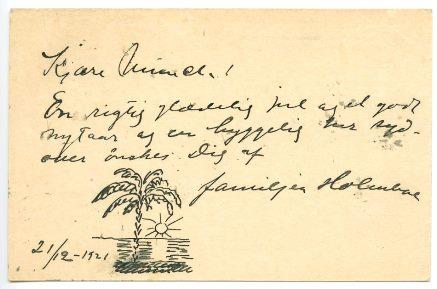 Kjære Munch!
En rigtig glædelig jul og et godt
nytaar og en hyggelig tur syd-
over ønskes Dig af
familjen Holmboe
21/12-1921